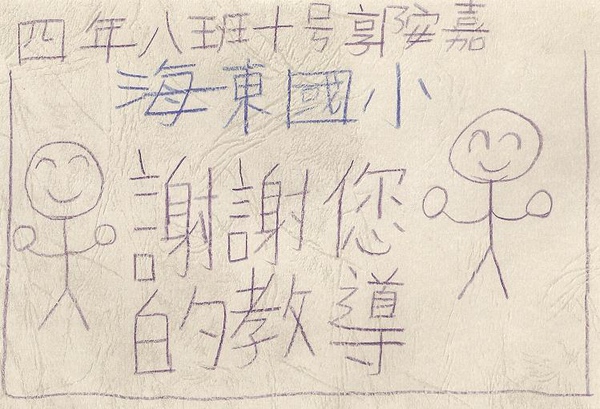 四年八班十号郭安嘉
海東國小
謝謝您
的教導